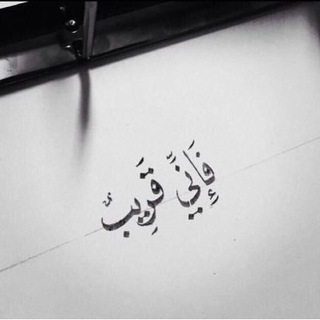 فَإِنَّي قَرِيبٌ